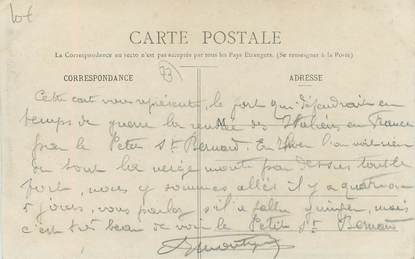 lot
CARTE POSTALE
La Correspondance au recto n'est pas acceptée par tous les Pays Etrangers. (Se renseigner à la Poste)
CORRESPONDANCE
73
ADRESSE
Cette carte vous représente, le fort qui défendrait en
temps de guerre la rentrée des Italiens en France
par le Petit St Bernard. En hiver
où tout la neige monte par dessus tout le
fort, nous y sommes allés il y a quatre ou
5 jours, vous parlez s'il a fallu grimper, mais
c'est très beau de voir le Petit St Bernard